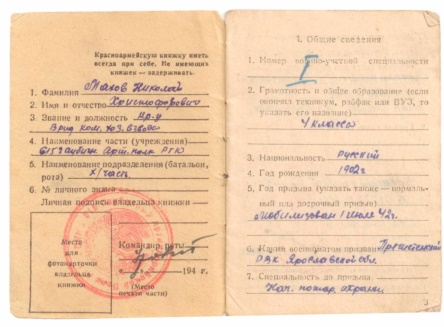 Красноармейскую книжку иметь
всегда при себе. Не имеющих
книжек — задерживать.
1. Фамилия Махов Николай
2. Имя и отчество Христофорович
3. Звание и должность
Врид ком. хоз. взвода
4. Наименование части (учреждения)
Гаубичн Арт. полк РГК
5. Наименование подразделения (батальон,
рота)
6. № личного знака
Личная подпись владельца книжки
Место
для
фотокарточки
владельца
книжки
Командир роты
194 г.
(Место
печати части)
I. Общие сведения
1. Номер военно-учетной специальности
I
2. Грамотность и общее образование (если
окончил техникум, рабфак или ВУЗ, то
указать его название)
4 класса
3. Национальность Русский
4. Год рождения 1902г
5. Год призыва (указать также — нормаль-
ный или досрочный призыв)
Мобилизован 1 июля 42г.
6. Каким военкоматом призван
РВК Ярославской обл.
7. Специальность до призыва
Нач. пожар. охраны
3